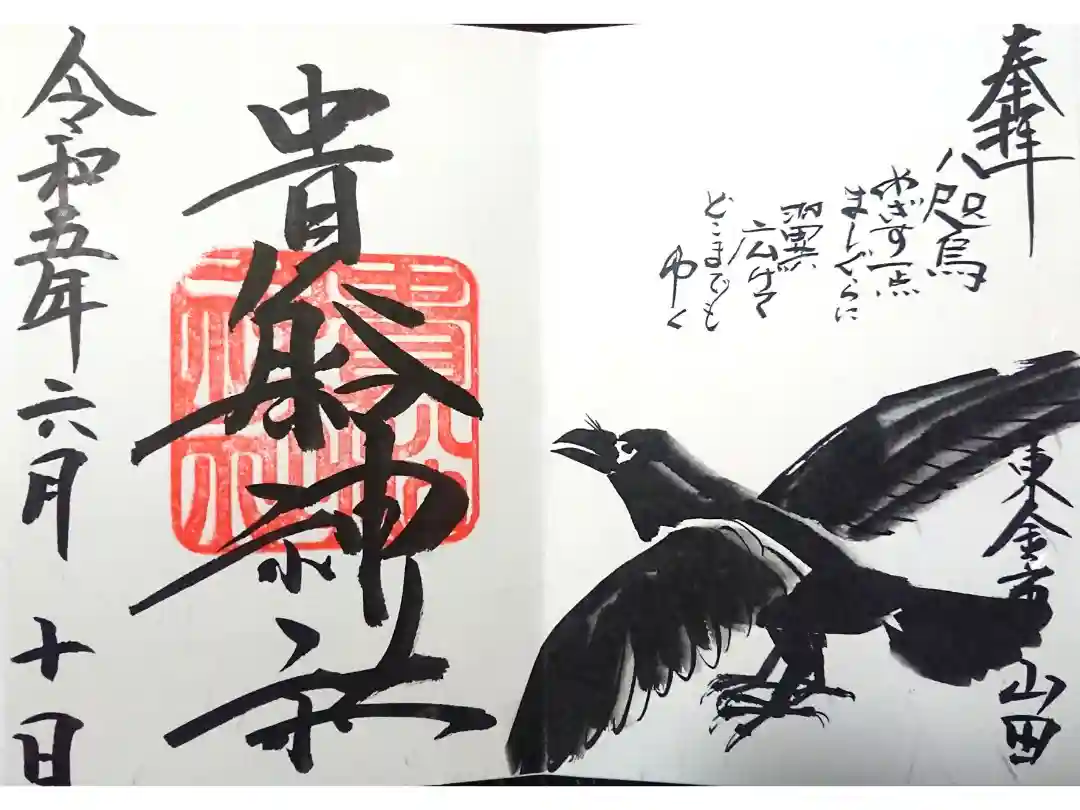 奉拝
八咫烏
めざす一点
ましぐらに
翼
広げて
どこまでも
ゆく
東金市 山田
貴舩神社
令和五年 六月 十日